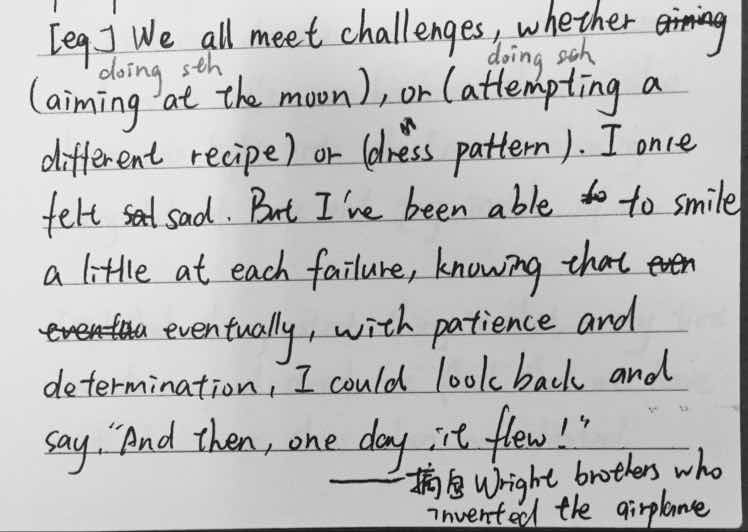 [eg] We all meet challenges, whether aiming
doing sth doing sth
(aiming at the moon), or (attempting a
n
different recipe) or (dress pattern). I once
felt sad sad. But I've been able to to smile
a little at each failure, knowing that even
eventua eventually, with patience and
determination, I could look back and
say, "And then, one day it flew!"
——摘自 Wright brothers who
invented the airplane